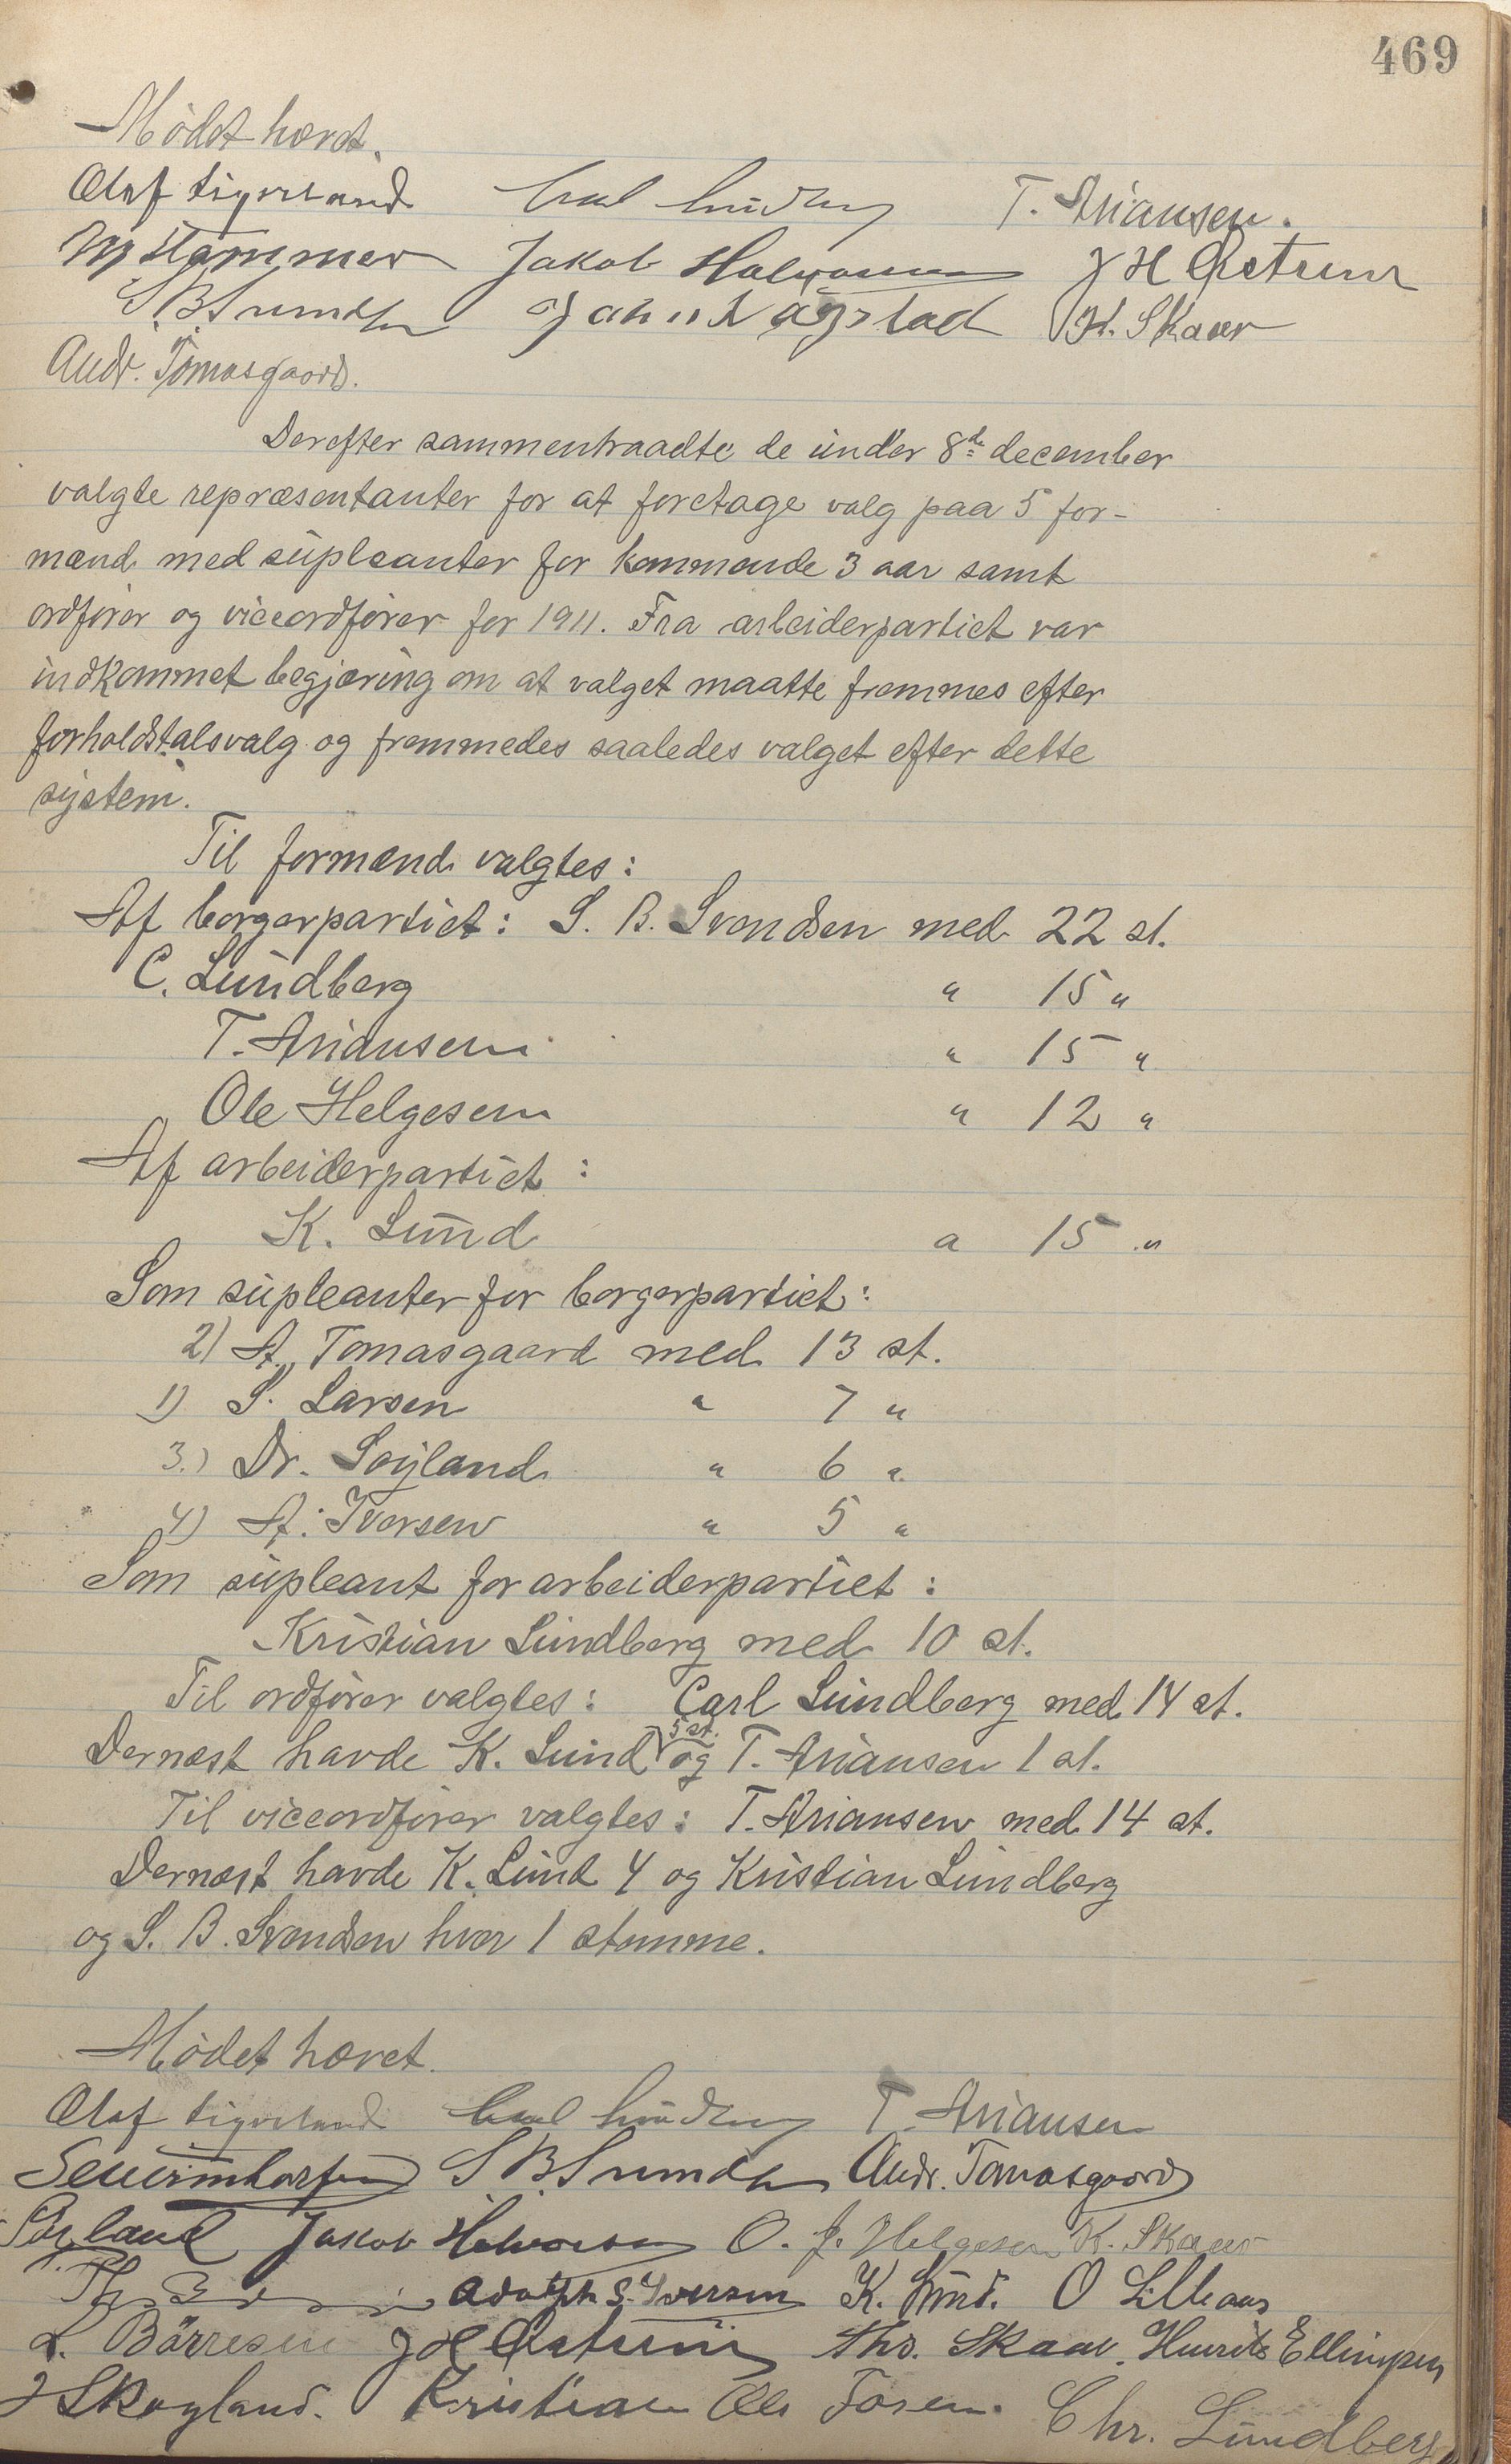 469
Mödet hævet.
Olaf Sigveland Carl Lundberg T. Ariansen.
M Hammer Jakob Halvorsen J H Østrem
S. B. Svendsen John Vagstad K. Skaar
Andr. Tomasgaard.
Derefter sammentraadte de under 8de december
valgte repræsentanter for at foretage valg paa 5 for-
mænd med supleanter for kommende 3 aar samt
ordförer og viceordförer for 1911. Fra arbeiderpartiet var
indkommet begjæring om at valget maatte fremmes efter
forholdstalsvalg og fremmedes saaledes valget efter dette
system.
Til formænd valgtes:
Af borgerpartiet: S. B. Svendsen med 22 st.
C. Lundberg " 15 "
T. Ariansen " 15 "
Ole Helgesen " 12 "
Af arbeiderpartiet:
K. Lund " 15 "
Som supleanter for borgerpartiet:
2) A. Tomasgaard med 13 st.
1) S. Larsen " 7 "
3.) Dr. Söyland " 6 "
4) A. Iversen " 5 "
Som supleant for arbeiderpartiet:
Kristian Lundberg med 10 st.
Til ordförer valgtes: Carl Lundberg med 14 st.
Dernæst havde K. Lund 5 st. og T. Ariansen 1 st.
Til viceordförer valgtes: T. Ariansen med 14 st.
Dernæst havde K. Lund 4 og Kristian Lundberg
og S. B. Svendsen hver 1 stemme.
Mödet hævet.
Olaf Sigveland Carl Lundberg T. Ariansen
S. B. Svendsen Andr. Tomasgaard
Söyland Jakob Halvorsen O. J. Helgesen K. Skaar
Adolph S. Iversen K. Lund. O Lilleaas
L. Börresen J H Østrem Thv. Skaar. Ellingsen
J Skogland. Kristian Ols Fosen. Chr. Lundberg